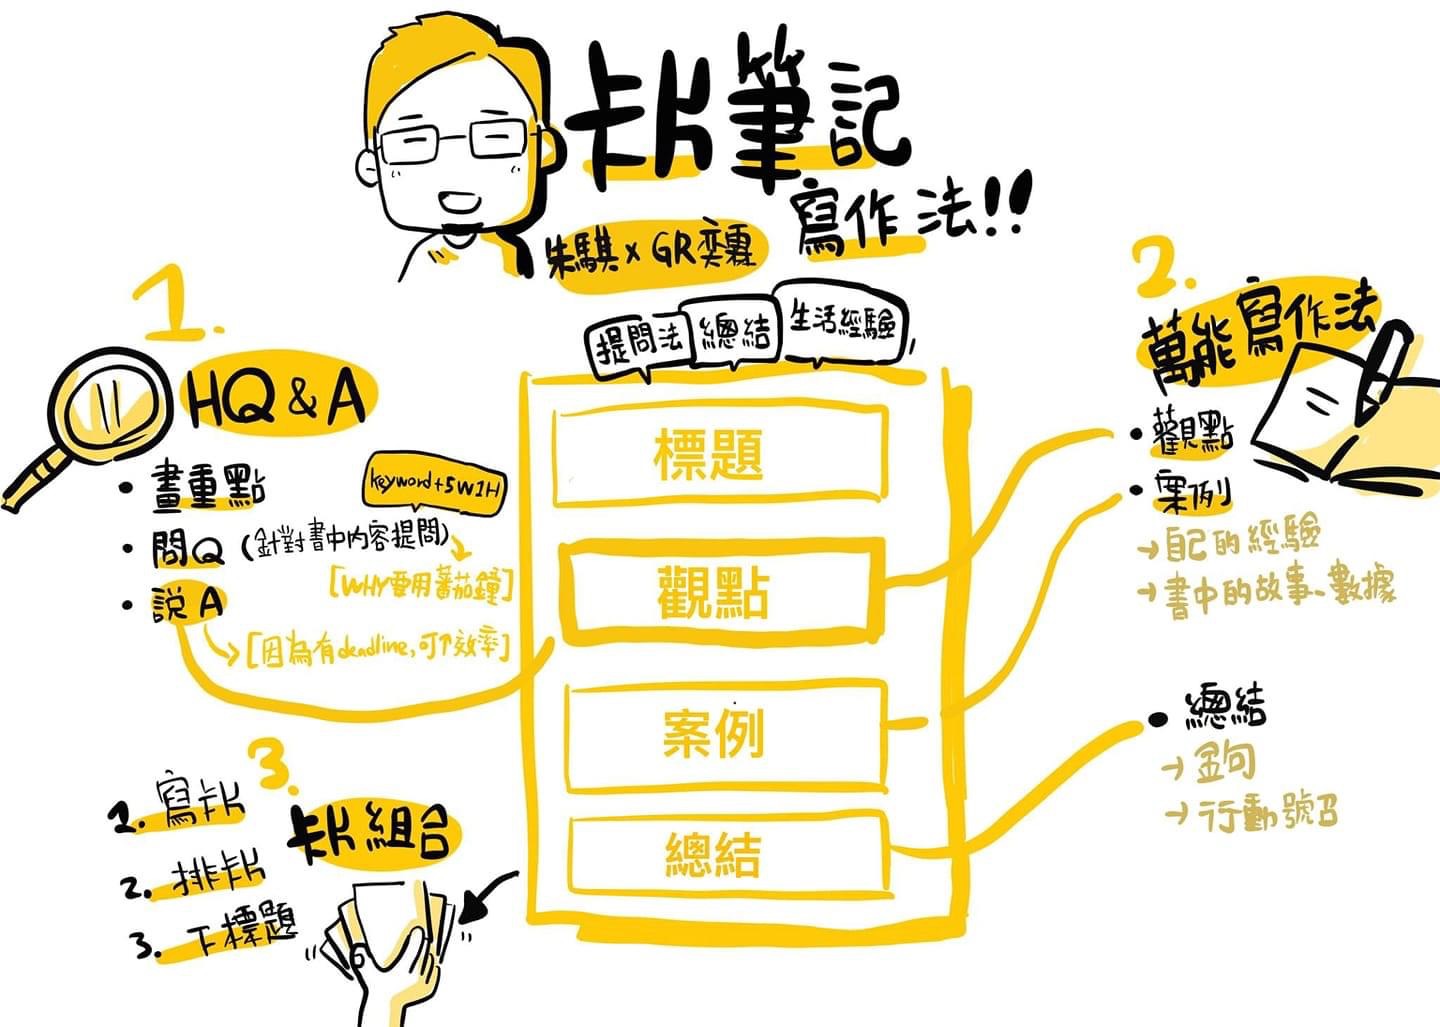 卡片筆記
寫作法!!
朱騏 x GR奕霖
1.
HQ & A
• 畫重點
keyword+5W1H
• 問Q (針對書中內容提問)
[WHY要用蕃茄鐘]
• 說A
[因為有deadline,可↑效率]
提問法
總結
生活經驗
標題
觀點
案例
總結
2.
萬能寫作法
• 觀點
• 案例
→ 自己的經驗
→ 書中的故事、數據
• 總結
→ 金句
→ 行動號召
3.
卡片組合
1. 寫卡片
2. 排卡片
3. 下標題